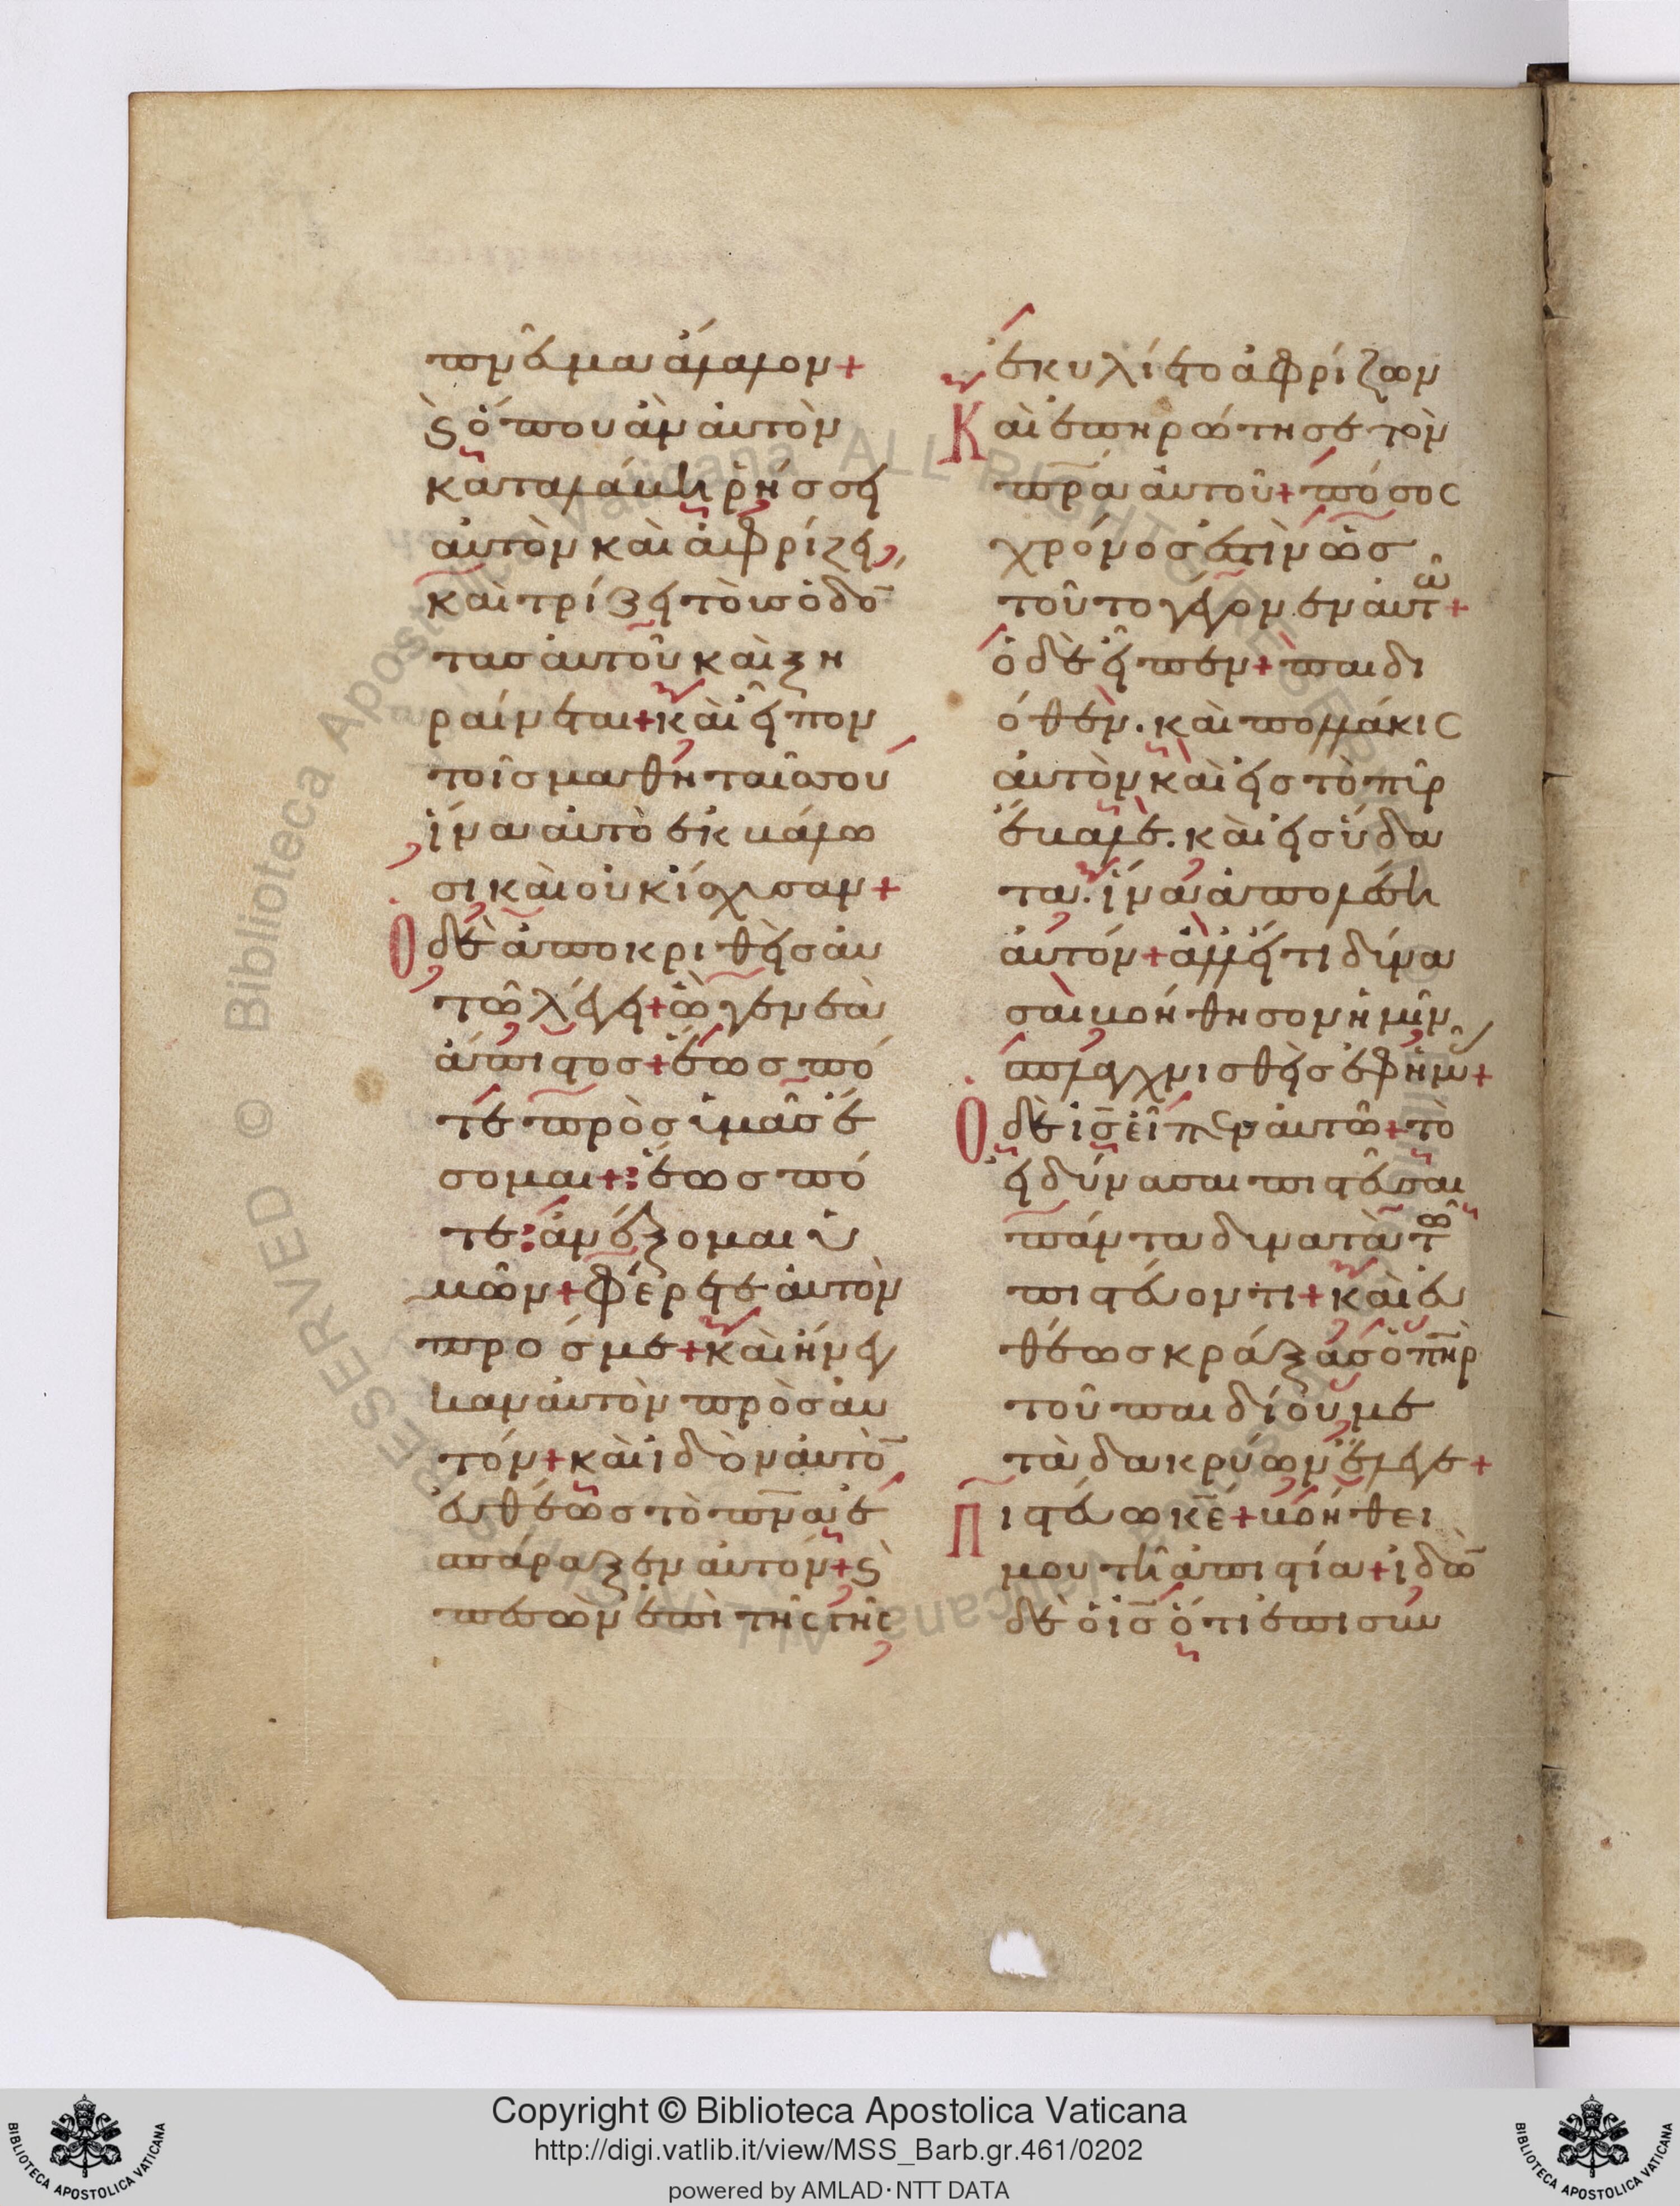 πνεῦμα ἄλαλον+
ϛ ὅπου ἂν αὐτὸν
καταλάβη ῥήσσει
αὐτὸν καὶ ἀφρίζει,
καὶ τρίζει τοὺσ ὀδό¯
τασ αὐτοῦ καὶ ξη
ραίνεται+καὶ εἶπον
τοῖσ μαθηταῖσ σου
ἵνα αὐτὸ ἐκβάλω
σι καὶ οὐκ ἴσχυσαν+
Ὁ δὲ ἀποκριθεὶσ αὐ
τῶ λέγει+ὦ γενεὰ
ἄπιστοσ+ἕωσ πό
τε πρὸσ ὑμᾶσ ἔ
σομαι+:ἕωσ πό
τε:ἀνέξομαι ὑ
μῶν+φέρετε αὐτὸν
πρόσ με+καὶ ἤνεγ
καν αὐτὸν πρὸσ αὐ
τόν+καὶ ἰδὸν αὐτὸ¯
εὐθέωσ τὸ πν̅α ἐ
σπάραξεν αὐτόν+ϛ
πεσὼν ἐπὶ τῆς γῆς
ἐκυλίετο ἀφρίζων
Καὶ ἐπηρώτησε τὸν
πρ̅α αὐτοῦ+πόσος
χρόνοσ ἐστὶν ὡσ
τοῦτο γέγονεν αὐτῶ+
ὁ δὲ εἶπεν+παιδι
όθεν. καὶ πολλάκις
αὐτὸν καὶ εἰσ τὸ πῦρ
ἔβαλε. καὶ εἰσ ὕδα
τα. ἵνα ἀπολέση
αὐτόν+ἀλλ εἴ τι δύνα
σαι βοήθησον ἡμῖν
σπλαγχνισθεὶσ ἐφ ἡμᾶσ+
Ὁ δὲ ισ̅ εἶπεν αὐτῶ+τὸ
εἰ δύνασαι πιστεῦσαι
πάντα δυνατὰ τῶ
πιστεύοντι+καὶ εὐ
θέωσ κράξασ ὁ πη̅ρ
τοῦ παιδίου με
τὰ δακρύων ἔλεγε+
Πιστεύω κε̅+βοήθει
μου τῆ ἀπιστία+ἰδὼ¯
δὲ ὁ ισ̅ ὅτι ἐπισυν
Copyright © Biblioteca Apostolica Vaticana
http://digi.vatlib.it/view/MSS_Barb.gr.461/0202
powered by AMLAD·NTT DATA